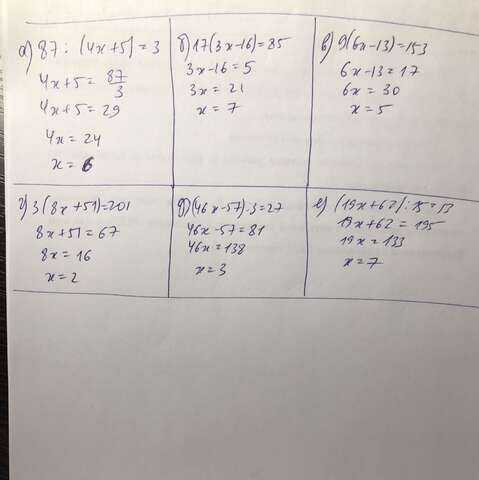 а) 87 : (4x+5) = 3
4x+5 = 87/3
4x+5 = 29
4x = 24
x = 6
б) 17(3x-16)=85
3x-16=5
3x = 21
x = 7
в) 9(6x-13)=153
6x-13=17
6x = 30
x = 5
г) 3(8x+51)=201
8x+51=67
8x = 16
x = 2
д) (46x-57):3=27
46x-57=81
46x=138
x=3
е) (19x+62):15=13
19x+62=195
19x=133
x=7